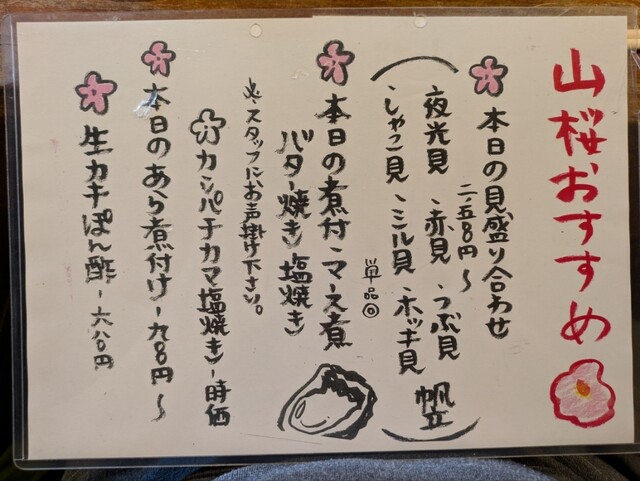 山桜おすすめ
本日の貝盛り合わせ
二、五八〇円〜
夜光貝、赤貝、つぶ貝
しゃこ貝、ミル貝、ホッキ貝
帆立
単品◎
本日の煮付、マース煮
バター焼き、塩焼き
※スタッフにお声掛け下さい。
カンパチカマ塩焼き-時価
本日のあら煮付け-九八〇円〜
生カキぽん酢-六八〇円